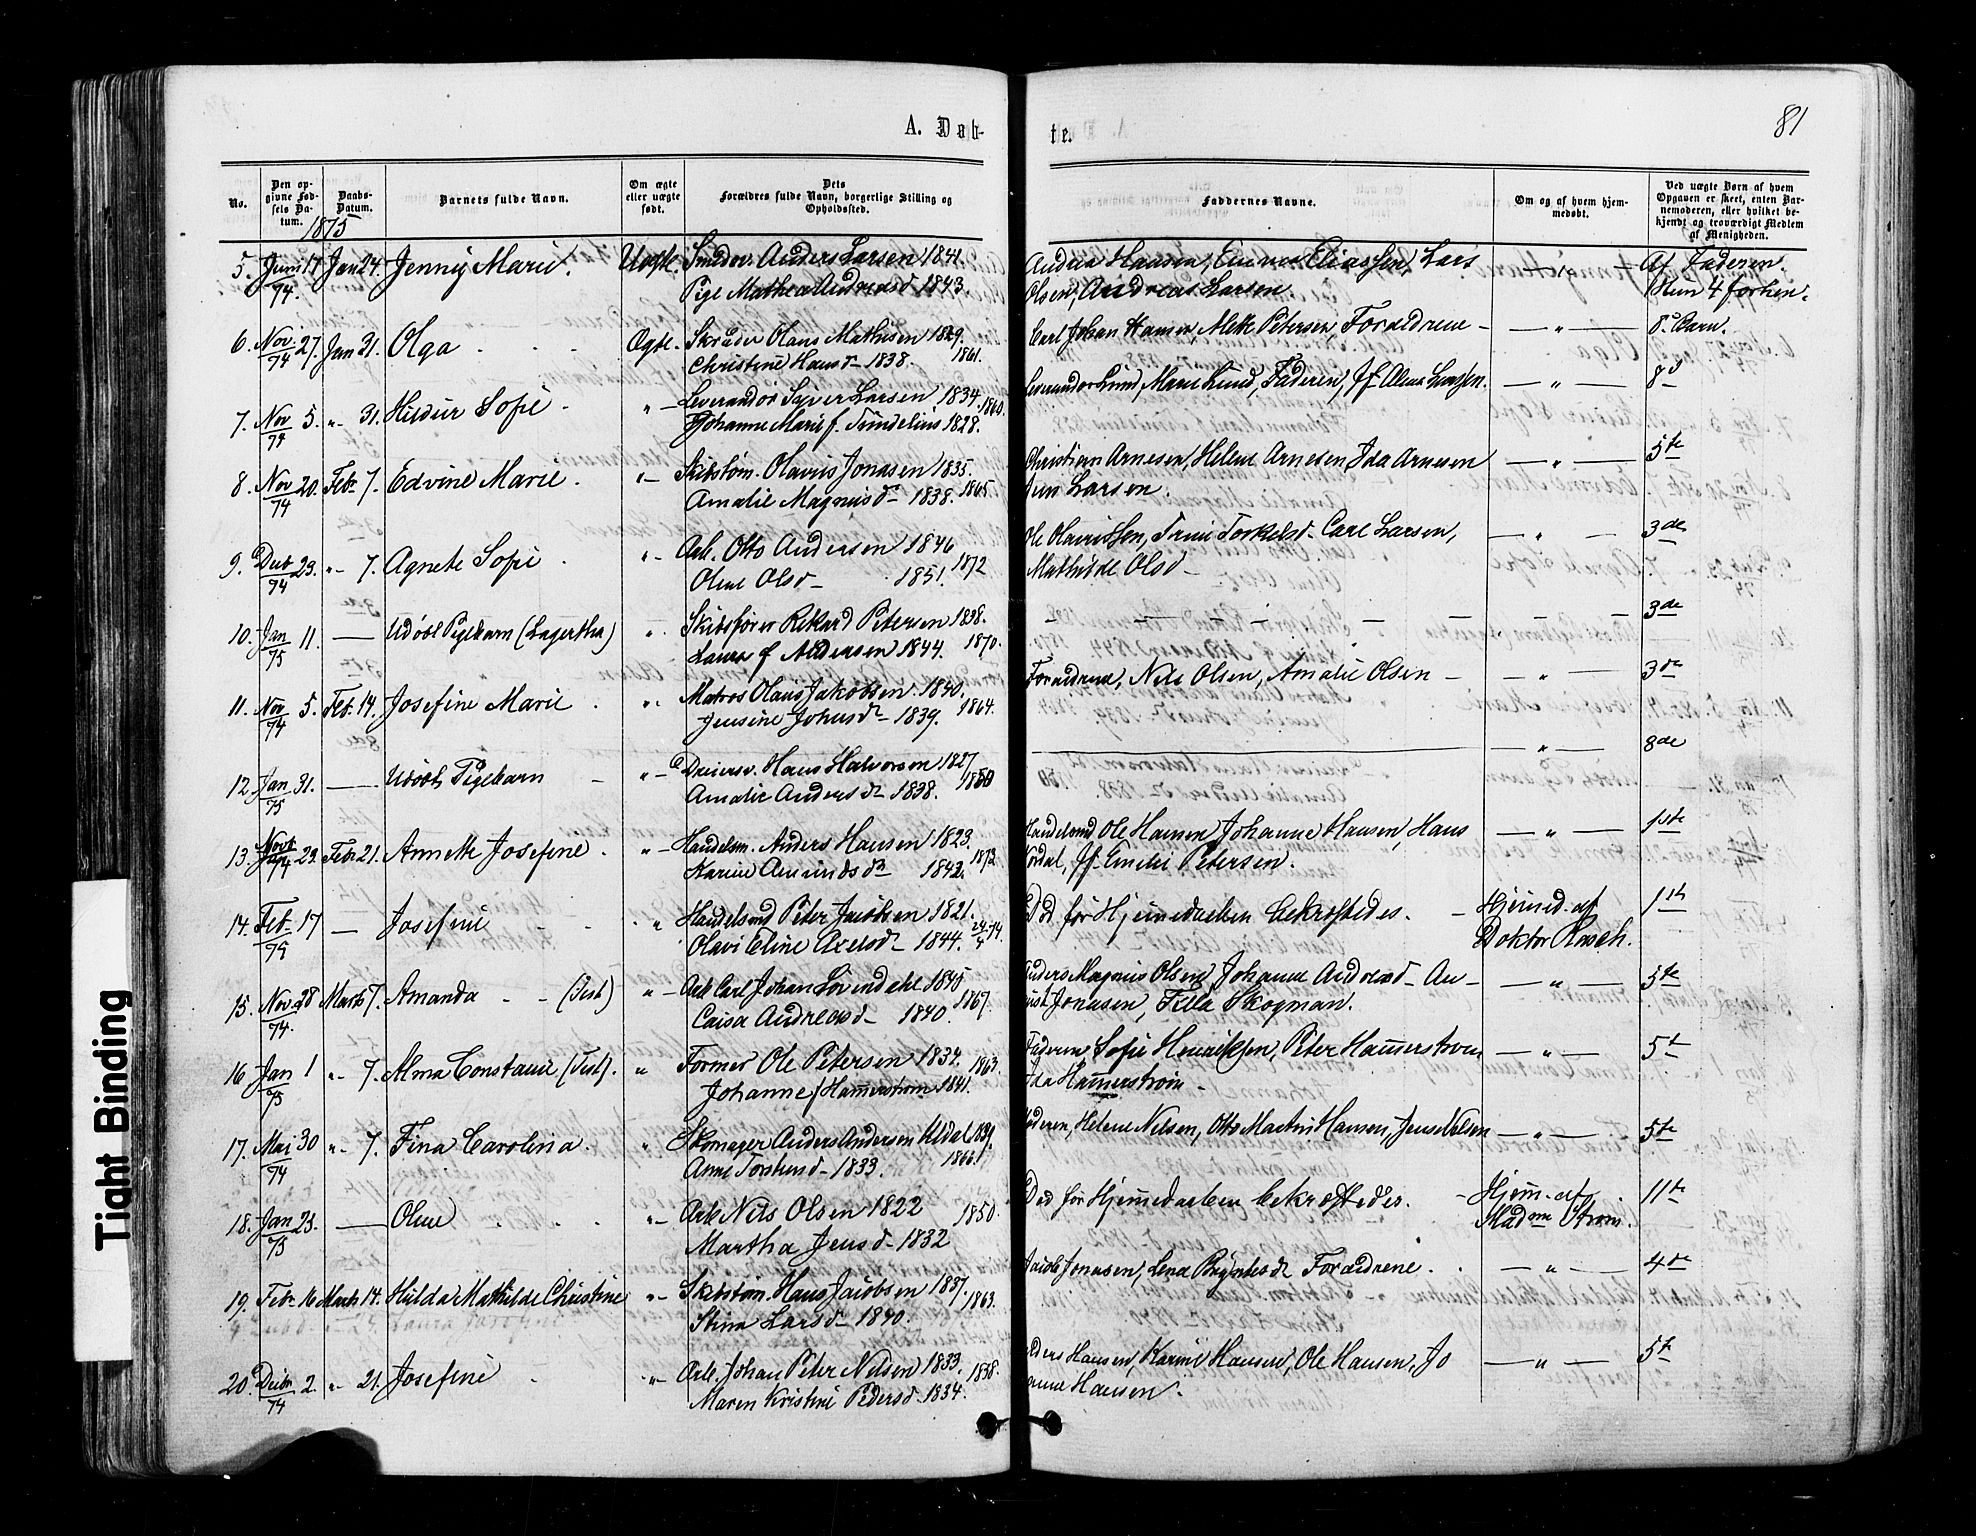 81
A. Døb-
te.
No.
Den op-
givne Fød-
sels Da-
tum.
Daabs-
Datum.
Barnets fulde Navn.
Om ægte
eller uægte
født.
Dets
Forældres fulde Navn, borgerlige Stilling og
Opholdssted.
Faddernes Navne.
Om og af hvem hjem-
medøbt.
Ved uægte Børn af hvem
Opgaven er skeet, enten Bar-
nemoderen, eller hvilket be-
kjendt og troværdigt Medlem
af Menigheden.
1875
5. Juni 17 Jan 24. Jenny Marie. Uægte. Anders Larsen 1841. Hansen, Eliassen, Lars Af Faderen.
74. Pige Mathea Andreasd 1843. Olsen, Andreas Larsen.
6. Nov 27. Jan 31. Olga Ægte. Olaus Mathisen 1829. Carl Johan Hansen, Petersen, Forældrene - — " — 8de Barn.
74 Christine Hansd - 1838. 1861.
7. Nov 5. " 31. Hildur Sofie " - Leverandør Larsen 1834. 1860. Leverandør Lund, Marie Lund, Faderen, Jf. — " — 8d
74 Johanne Marie f. 1828.
8. Nov 20. Feb. 7. Edvine Marie. " - Skibstøm. Olavus Jonasen 1835. Christian Arnesen, Helene Arnesen Ida Arnesen — " — 5te
74 Amalie Magnusd - 1838. 1865 Larsen.
9. Decb 23. " 7. Agnete Sofie " - Arb. Otto Andersen 1846 Ole Olavissen, Trine Torkelsd. Carl Larsen, — " — 3de
74 Olene Olsd - 1851. 1872 Mathilde Olsd -
10. Jan 11. — Udøbt Pigebarn (Lagertha) " Skibsfører Rikard Petersen 1838. 3de
75 Laura f Andersen 1844. 1870.
11. Nov 5. Feb. 14. Josefine Marie " Matros Olaus Jakobsen 1840. Forældrene, Nils Olsen, Amalie Olsen - — " — 3de
74 Jensine Johnsd - 1839. 1864.
12. Jan 31. — Udøbt Pigebarn " - Hans Halvorsen 1827 — " — 8de
75 Amalie Andersd - 1838. 1860
13. Novb 23. Feb 21. Annette Josefine. " - Handelsm. Anders Hansen 1823. Handelsmd Ole Hansen Johanne Hansen, Hans — " — 1ste
74 Karine Amundsd 1842. 1872. Jf. Emilie Petersen.
14. Feb. 17 — Josefine " Handelsmd Peter Jacobsen 1821. Død før Hjemmedaaben bekræftedes. - Hjemmed. af 1ste
75 Olavi Eline Axelsd - 1844. Doktor Rasch.
15. Nov 28 Marts 7. Amanda (Tvst) " - Arb Carl Johan Lövendahl 1845 Anders Magnus Olsen, Johanne Andreasd - Au- — " — 5te
74. Caisa Andreasd - 1840. 1867. gust Jonasen, Skogman.
16 Jan 1 " 7. Alma Constanse (Tvst). " Former Ole Petersen 1834. 1863. Faderen, Sofie Henriksen, Peter Hammerstrøm — " — 5te
75 Johanne f Hammerstrøm 1841. Ida Hammerstrøm -
17. Mai 30 " 7. Fina Carolina. " Skomager Anders Andersen 1831. Faderen, Helene Nilsen, Otto Martin Hansen, Jens Nilsen — " — 5te
74 Anne Torstensd - 1833. 1866.
18. Jan 23. — Oline " - Arb Nils Olsen 1822 1850. Død før Hjemmedaaben bekræftedes. - Hjem. af 11te
75 Martha Jensd - 1832 Madme Strøm.
19. Feb. 16 Marts 14. Hulda Mathilde Christine " - Skibstøm. Hans Jacobsen 1837. Jacob Jonasen, Lena Forældrene. — " — 4de
Stina Larsd - 1840. 1863.
20. Decbr 2. " 21. Josefine " - Arb. Johan Peter Nilsen 1833. 1858. Anders Hansen, Karine Hansen, Ole Hansen, Jo — " — 5te
74 Maren Kristine Pedersd. 1834. hanne Hansen.
Tight Binding